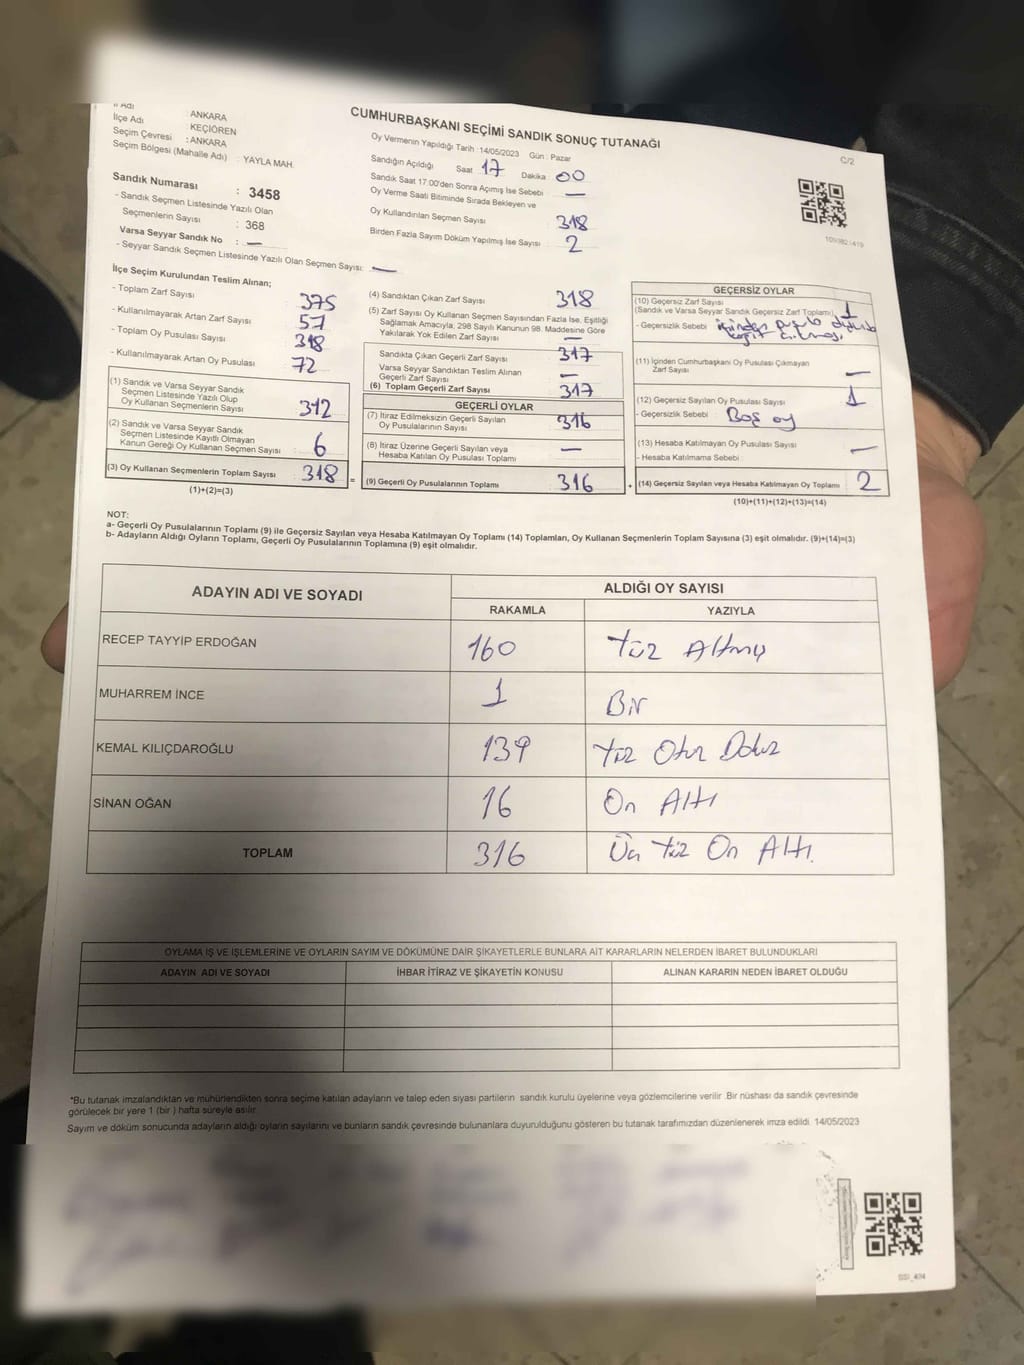 CUMHURBAŞKANI SEÇİMİ SANDIK SONUÇ TUTANAĞI
C/2
İl Adı
: ANKARA
İlçe Adı
: KEÇİÖREN
Seçim Çevresi
: ANKARA
Seçim Bölgesi (Mahalle Adı) : YAYLA MAH.
Sandık Numarası : 3458
- Sandık Seçmen Listesinde Yazılı Olan
Seçmenlerin Sayısı : 368
Varsa Seyyar Sandık No : —
- Seyyar Sandık Seçmen Listesinde Yazılı Olan Seçmen Sayısı: —
Oy Vermenin Yapıldığı Tarih :14/05/2023 Gün : Pazar
Sandığın Açıldığı Saat 17 Dakika 00
Sandık Saat 17:00'den Sonra Açımış İse Sebebi —
Oy Verme Saati Bitiminde Sırada Bekleyen ve
Oy Kullandırılan Seçmen Sayısı 318
Birden Fazla Sayım Döküm Yapılmış İse Sayısı 2
İlçe Seçim Kurulundan Teslim Alınan;
- Toplam Zarf Sayısı 375
- Kullanılmayarak Artan Zarf Sayısı 57
- Toplam Oy Pusulası Sayısı 318
- Kullanılmayarak Artan Oy Pusulası 72
(1) Sandık ve Varsa Seyyar Sandık
Seçmen Listesinde Yazılı Olup
Oy Kullanan Seçmenlerin Sayısı 312
(2) Sandık ve Varsa Seyyar Sandık
Seçmen Listesinde Kayıtlı Olmayan
Kanun Gereği Oy Kullanan Seçmen Sayısı 6
(3) Oy Kullanan Seçmenlerin Toplam Sayısı 318 =
(1)+(2)=(3)
(4) Sandıktan Çıkan Zarf Sayısı 318
(5) Zarf Sayısı Oy Kullanan Seçmen Sayısından Fazla İse, Eşitliği
Sağlamak Amacıyla, 298 Sayılı Kanunun 98. Maddesine Göre
Yakılarak Yok Edilen Zarf Sayısı —
Sandıkta Çıkan Geçerli Zarf Sayısı 317
Varsa Seyyar Sandıktan Teslim Alınan
Geçerli Zarf Sayısı —
(6) Toplam Geçerli Zarf Sayısı 317
GEÇERLİ OYLAR
(7) İtiraz Edilmeksizin Geçerli Sayılan
Oy Pusulasının Sayısı 316
(8) İtiraz Üzerine Geçerli Sayılan veya
Hesaba Katılan Oy Pusulası Toplamı —
(9) Geçerli Oy Pusulalarının Toplamı 316 +
GEÇERSİZ OYLAR
(10) Geçersiz Zarf Sayısı
(Sandık ve Varsa Seyyar Sandık Geçersiz Zarf Toplamı) 1
- Geçersizlik Sebebi : içinden
(11) İçinden Cumhurbaşkanı Oy Pusulası Çıkmayan
Zarf Sayısı —
(12) Geçersiz Sayılan Oy Pusulası Sayısı 1
- Geçersizlik Sebebi : Boş oy
(13) Hesaba Katılmayan Oy Pusulası Sayısı —
- Hesaba Katılmama Sebebi :
(14) Geçersiz Sayılan veya Hesaba Katılmayan Oy Toplamı 2
(10)+(11)+(12)+(13)=(14)
NOT:
a- Geçerli Oy Pusulalarının Toplamı (9) ile Geçersiz Sayılan veya Hesaba Katılmayan Oy Toplamı (14) Toplamları, Oy Kullanan Seçmenlerin Toplam Sayısına (3) eşit olmalıdır. (9)+(14)=(3)
b- Adayların Aldığı Oyların Toplamı, Geçerli Oy Pusulalarının Toplamına (9) eşit olmalıdır.
ADAYIN ADI VE SOYADI
ALDIĞI OY SAYISI
RAKAMLA YAZIYLA
RECEP TAYYİP ERDOĞAN 160 Yüz Altmış
MUHARREM İNCE 1 Bir
KEMAL KILIÇDAROĞLU 139 Yüz Otuz Dokuz
SİNAN OĞAN 16 On Altı
TOPLAM 316 Üç Yüz On Altı.
OYLAMA İŞ VE İŞLEMLERİNE VE OYLARIN SAYIM VE DÖKÜMÜNE DAİR ŞİKAYETLERLE BUNLARA AİT KARARLARIN NELERDEN İBARET BULUNDUKLARI
ADAYIN ADI VE SOYADI İHBAR İTİRAZ VE ŞİKAYETİN KONUSU ALINAN KARARIN NEDEN İBARET OLDUĞU
*Bu tutanak imzalandıktan ve mühürlendikten sonra seçime katılan adayların ve talep eden siyasi partilerin sandık kurulu üyelerine veya gözlemcilerine verilir .Bir nüshası da sandık çevresinde
görülecek bir yere 1 (bir ) hafta süreyle asılır.
Sayım ve döküm sonucunda adayların aldığı oyların sayılarını ve bunların sandık çevresinde bulunanlara duyurulduğunu gösteren bu tutanak tarafımızdan düzenlenerek imza edildi. 14/05/2023